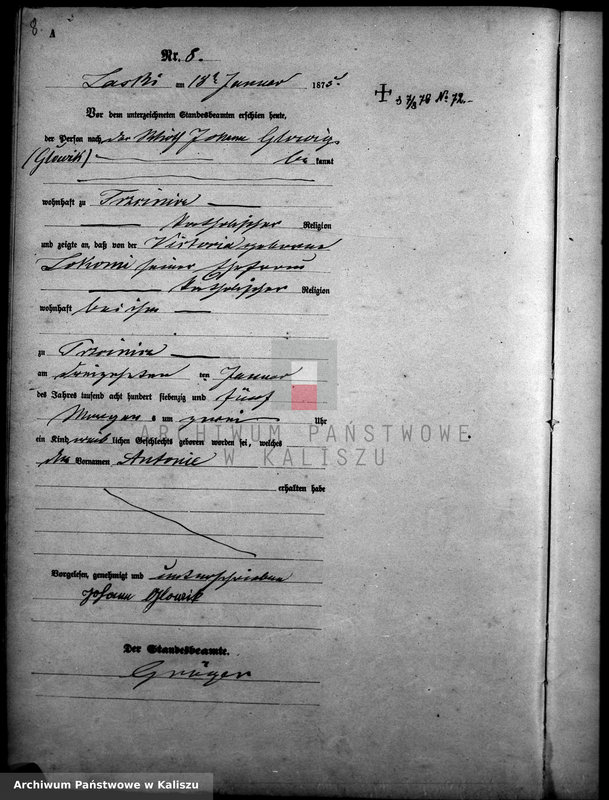 8. A
Nr. 8.
Laski am 18t Januar 1875.
+ 3 7/8 78 No 72.
Vor dem unterzeichneten Standesbeamten erschien heute,
der Person nach der Johann Glowig
(Glowik) be kannt
wohnhaft zu Trzcinica
katholischer Religion
und zeigte an, daß von der Victoria geborene
seiner Ehefrau
katholischer Religion
wohnhaft bei ihm
zu Trzcinica
am dreizehnten ten Januar
des Jahres tausend acht hundert siebenzig und fünf
Morgen s um zwei Uhr
ein Kind weib lichen Geschlechts geboren worden sei, welches
den Vornamen Antonie
erhalten habe
Vorgelesen, genehmigt und unterschrieben
Johann Glowik
Der Standesbeamte.
Gröger
ARCHIWUM PAŃSTWOWE
W KALISZU
Archiwum Państwowe w Kaliszu